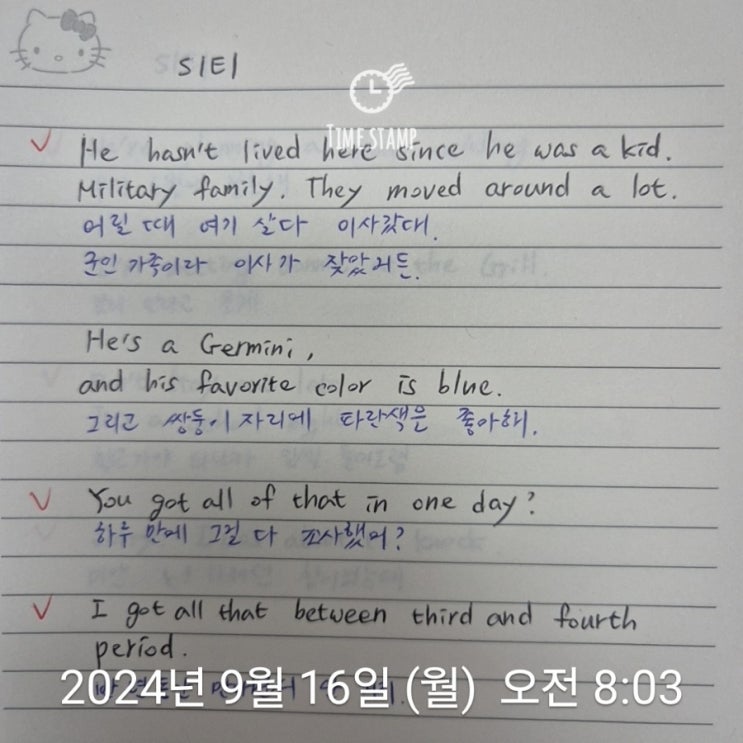 S1E1
TIMESTAMP
He hasn't lived here since he was a kid.
Military family. They moved around a lot.
어릴 때 여기 살다 이사갔대.
군인 가족이라 이사가 잦았거든.
He's a Germini,
and his favorite color is blue.
그리고 쌍둥이자리에 파란색을 좋아해.
You got all of that in one day?
하루 만에 그걸 다 조사했어?
I got all that between third and fourth
period.
2024년 9월 16일 (월) 오전 8:03